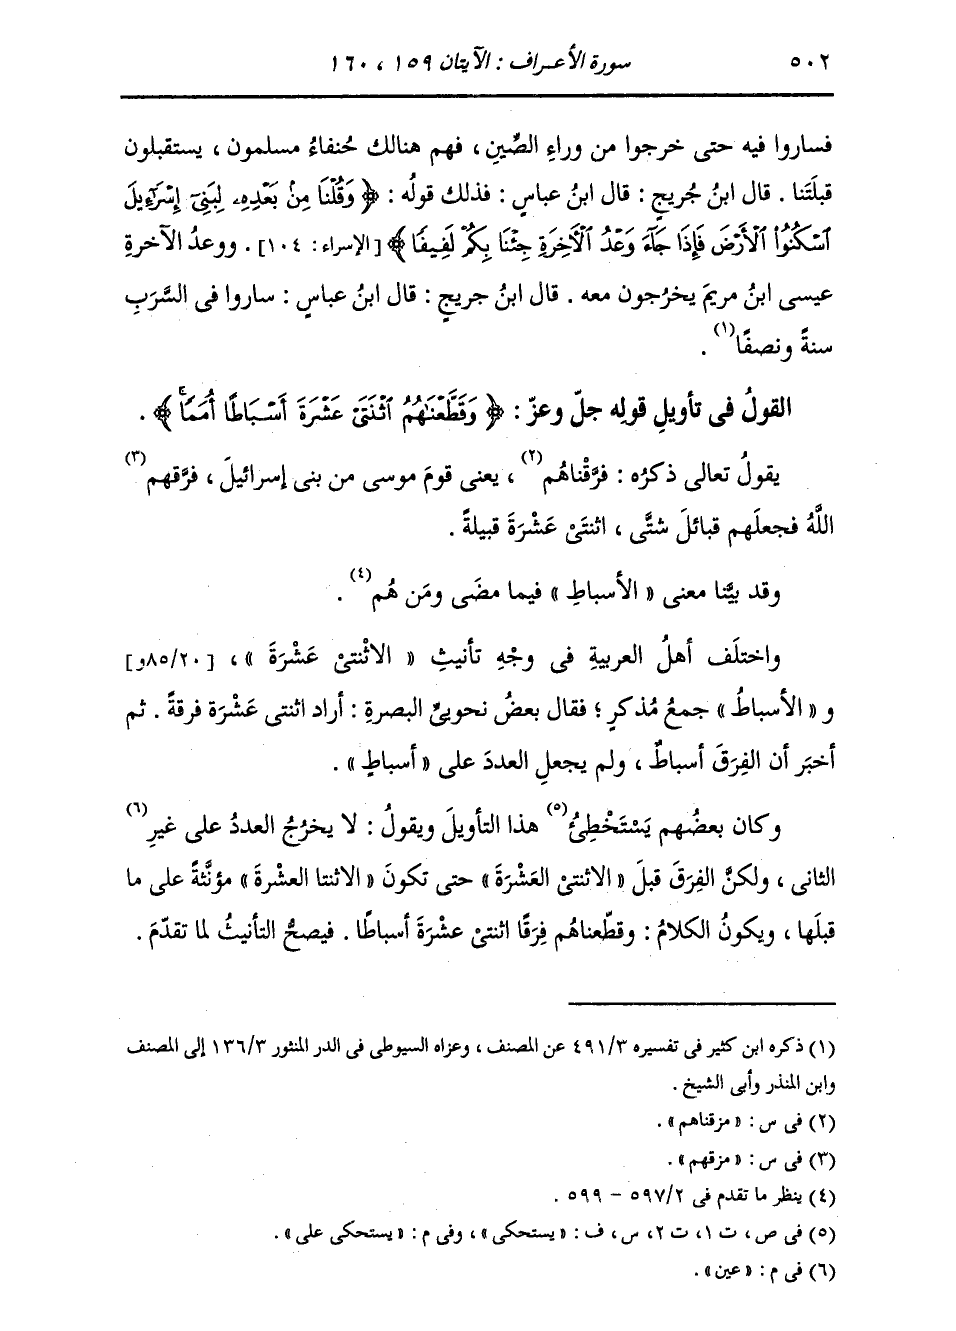 ٥٠٢ سورة الأعراف : الآيتان ١٥٩ ، ١٦٠
فساروا فيه حتى خرجوا من وراءِ الصِّينِ ، فهم هنالك حُنفاءُ مسلمون ، يستقبلون
قبلَتَنا . قال ابنُ جُريجٍ : قال ابنُ عباسٍ : فذلك قولُه : ﴿ وَقُلْنَا مِنۢ بَعْدِهِۦ لِبَنِىٓ إِسْرَٰٓءِيلَ
ٱسْكُنُوا۟ ٱلْأَرْضَ فَإِذَا جَآءَ وَعْدُ ٱلْأَخِرَةِ جِئْنَا بِكُمْ لَفِيفًا ﴾ [الإسراء: ١٠٤] . ووعدُ الآخرةِ
عيسى ابنُ مريمَ يخرُجون معه . قال ابنُ جريجٍ : قال ابنُ عباسٍ : ساروا فى السَّرَبِ
سنةً ونصفًا(١) .
القولُ فى تأويلِ قولِه جلّ وعزّ : ﴿ وَقَطَّعْنَٰهُمُ ٱثْنَتَىْ عَشْرَةَ أَسْبَاطًا أُمَمًاۚ ﴾ .
يقولُ تعالى ذكرُه : فرَّقْناهُم(٢) ، يعنى قومَ موسى من بنى إسرائيلَ ، فرَّقهم(٣)
اللَّهُ فجعلَهم قبائلَ شتَّى ، اثنتَىْ عَشْرَةَ قبيلةً .
وقد بيَّنا معنى « الأسباطِ » فيما مضَى ومَن هُم(٤) .
واختلَف أهلُ العربيةِ فى وجْهِ تأنيثِ « الاثْنتىْ عَشْرَةَ » ، [٨٥/٢٠و]
و « الأسباطُ » جمعُ مُذكرٍ ؛ فقال بعضُ نحويىِّ البصرةِ : أراد اثنتى عَشْرَة فرقةً . ثم
أخبَر أن الفِرَقَ أسباطٌ ، ولم يجعلِ العددَ على « أسباطٍ » .
وكان بعضُهم يَسْتَخْطِئُ(٥) هذا التأويلَ ويقولُ : لا يخرُجُ العددُ على غيرِ(٦)
الثانى ، ولكنَّ الفِرَقَ قبلَ « الاثنتىْ العَشْرَةَ » حتى تكونَ « الاثنتا العشْرةَ » مؤنَّثةً على ما
قبلَها ، ويكونُ الكلامُ : وقطّعناهُم فِرَقًا اثنتىْ عشْرةَ أسباطًا . فيصحُّ التأنيثُ لما تقدّمَ .
(١) ذكره ابن كثير فى تفسيره ٤٩١/٣ عن المصنف ، وعزاه السيوطى فى الدر المنثور ١٣٦/٣ إلى المصنف
وابن المنذر وأبى الشيخ .
(٢) فى س : « مزقناهم » .
(٣) فى س : « مزقهم » .
(٤) ينظر ما تقدم فى ٥٩٧/٢ - ٥٩٩ .
(٥) فى ص ، ت ١، ت ٢، س، ف : « يستحكى » ، وفى م : « يستحكى على » .
(٦) فى م : « عين » .